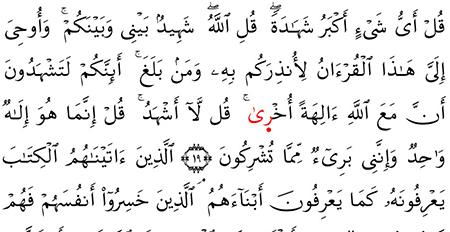 قُلْ أَىُّ شَىْءٍ أَكْبَرُ شَهَٰدَةً ۖ قُلِ ٱللَّهُ ۖ شَهِيدٌۢ بَيْنِى وَبَيْنَكُمْ ۚ وَأُوحِىَ
إِلَىَّ هَٰذَا ٱلْقُرْءَانُ لِأُنذِرَكُم بِهِۦ وَمَنۢ بَلَغَ ۚ أَئِنَّكُمْ لَتَشْهَدُونَ
أَنَّ مَعَ ٱللَّهِ ءَالِهَةً أُخْرَىٰ ۚ قُل لَّآ أَشْهَدُ ۚ قُلْ إِنَّمَا هُوَ إِلَٰهٌ
وَٰحِدٌ وَإِنَّنِى بَرِىٓءٌ مِّمَّا تُشْرِكُونَ ۝١٩ ٱلَّذِينَ ءَاتَيْنَٰهُمُ ٱلْكِتَٰبَ
يَعْرِفُونَهُۥ كَمَا يَعْرِفُونَ أَبْنَآءَهُمُ ۘ ٱلَّذِينَ خَسِرُوٓا۟ أَنفُسَهُمْ فَهُمْ